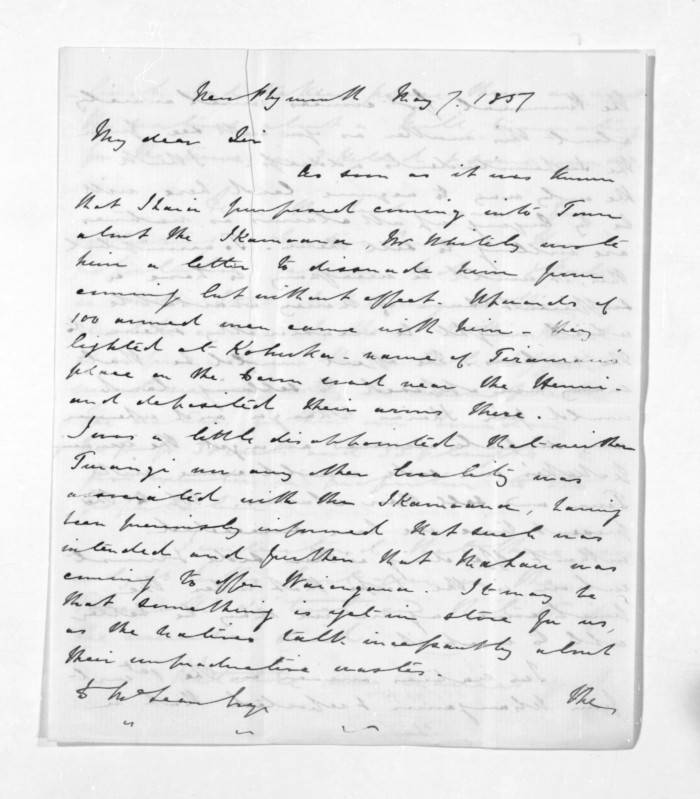 New Plymouth May 7. 1857
My dear Sir
As soon as it was known
that Ihaia purposed coming into Town
about the Ikamoana, Mr Whitely wrote
him a letter to dissuade him from
coming but without effect. Upwards of
100 armed men came with him - they
lighted at - name of
place on the road near the Henui -
and deposited their arms there.
I was a little disappointed that neither
Turangi nor any other locality was
associated with the Ikamoana, having
been previously informed that such was
intended and further that Mahau was
coming to offer Waiongana. It may be
that something is yet in store for us,
as the natives talk incessantly about
their unproductive wastes.
D McLean Esqr
The